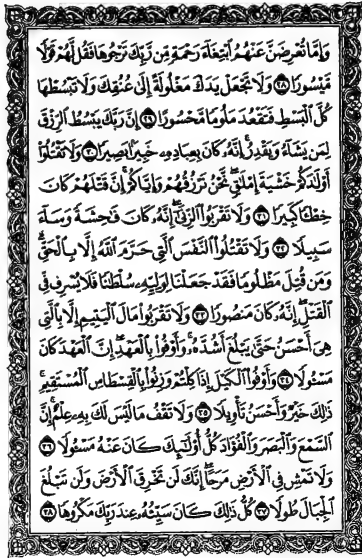 وَإِمَّا تُعْرِضَنَّ عَنْهُمُ ٱبْتِغَآءَ رَحْمَةٍ مِّن رَّبِّكَ تَرْجُوهَا فَقُل لَّهُمْ قَوْلًا
مَّيْسُورًا ٢٨ وَلَا تَجْعَلْ يَدَكَ مَغْلُولَةً إِلَىٰ عُنُقِكَ وَلَا تَبْسُطْهَا
كُلَّ ٱلْبَسْطِ فَتَقْعُدَ مَلُومًا مَّحْسُورًا ٢٩ إِنَّ رَبَّكَ يَبْسُطُ ٱلرِّزْقَ
لِمَن يَشَآءُ وَيَقْدِرُ إِنَّهُۥ كَانَ بِعِبَادِهِۦ خَبِيرًۢا بَصِيرًا ٣٠ وَلَا تَقْتُلُوٓا۟
أَوْلَٰدَكُمْ خَشْيَةَ إِمْلَٰقٍ نَّحْنُ نَرْزُقُهُمْ وَإِيَّاكُمْ إِنَّ قَتْلَهُمْ كَانَ
خِطْـًٔا كَبِيرًا ٣١ وَلَا تَقْرَبُوا۟ ٱلزِّنَىٰٓ إِنَّهُۥ كَانَ فَٰحِشَةً وَسَآءَ
سَبِيلًا ٣٢ وَلَا تَقْتُلُوا۟ ٱلنَّفْسَ ٱلَّتِى حَرَّمَ ٱللَّهُ إِلَّا بِٱلْحَقِّ
وَمَن قُتِلَ مَظْلُومًا فَقَدْ جَعَلْنَا لِوَلِيِّهِۦ سُلْطَٰنًا فَلَا يُسْرِف فِّى
ٱلْقَتْلِ إِنَّهُۥ كَانَ مَنصُورًا ٣٣ وَلَا تَقْرَبُوا۟ مَالَ ٱلْيَتِيمِ إِلَّا بِٱلَّتِى
هِىَ أَحْسَنُ حَتَّىٰ يَبْلُغَ أَشُدَّهُۥ وَأَوْفُوا۟ بِٱلْعَهْدِ إِنَّ ٱلْعَهْدَ كَانَ
مَسْـُٔولًا ٣٤ وَأَوْفُوا۟ ٱلْكَيْلَ إِذَا كِلْتُمْ وَزِنُوا۟ بِٱلْقِسْطَاسِ ٱلْمُسْتَقِيمِ
ذَٰلِكَ خَيْرٌ وَأَحْسَنُ تَأْوِيلًا ٣٥ وَلَا تَقْفُ مَا لَيْسَ لَكَ بِهِۦ عِلْمٌ إِنَّ
ٱلسَّمْعَ وَٱلْبَصَرَ وَٱلْفُؤَادَ كُلُّ أُو۟لَٰٓئِكَ كَانَ عَنْهُ مَسْـُٔولًا ٣٦
وَلَا تَمْشِ فِى ٱلْأَرْضِ مَرَحًا إِنَّكَ لَن تَخْرِقَ ٱلْأَرْضَ وَلَن تَبْلُغَ
ٱلْجِبَالَ طُولًا ٣٧ كُلُّ ذَٰلِكَ كَانَ سَيِّئُهُۥ عِندَ رَبِّكَ مَكْرُوهًا ٣٨